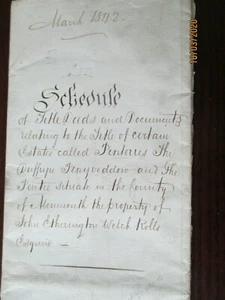 March 1842.
10/03/2020
Schedule
of Title Deeds and Documents
relating to the Title of certain
Estates called Pentares The
Duffryn Penyroeddow and The
situate in the County
of Monmouth the property of
John Etherington Welch Rolls
Esquire